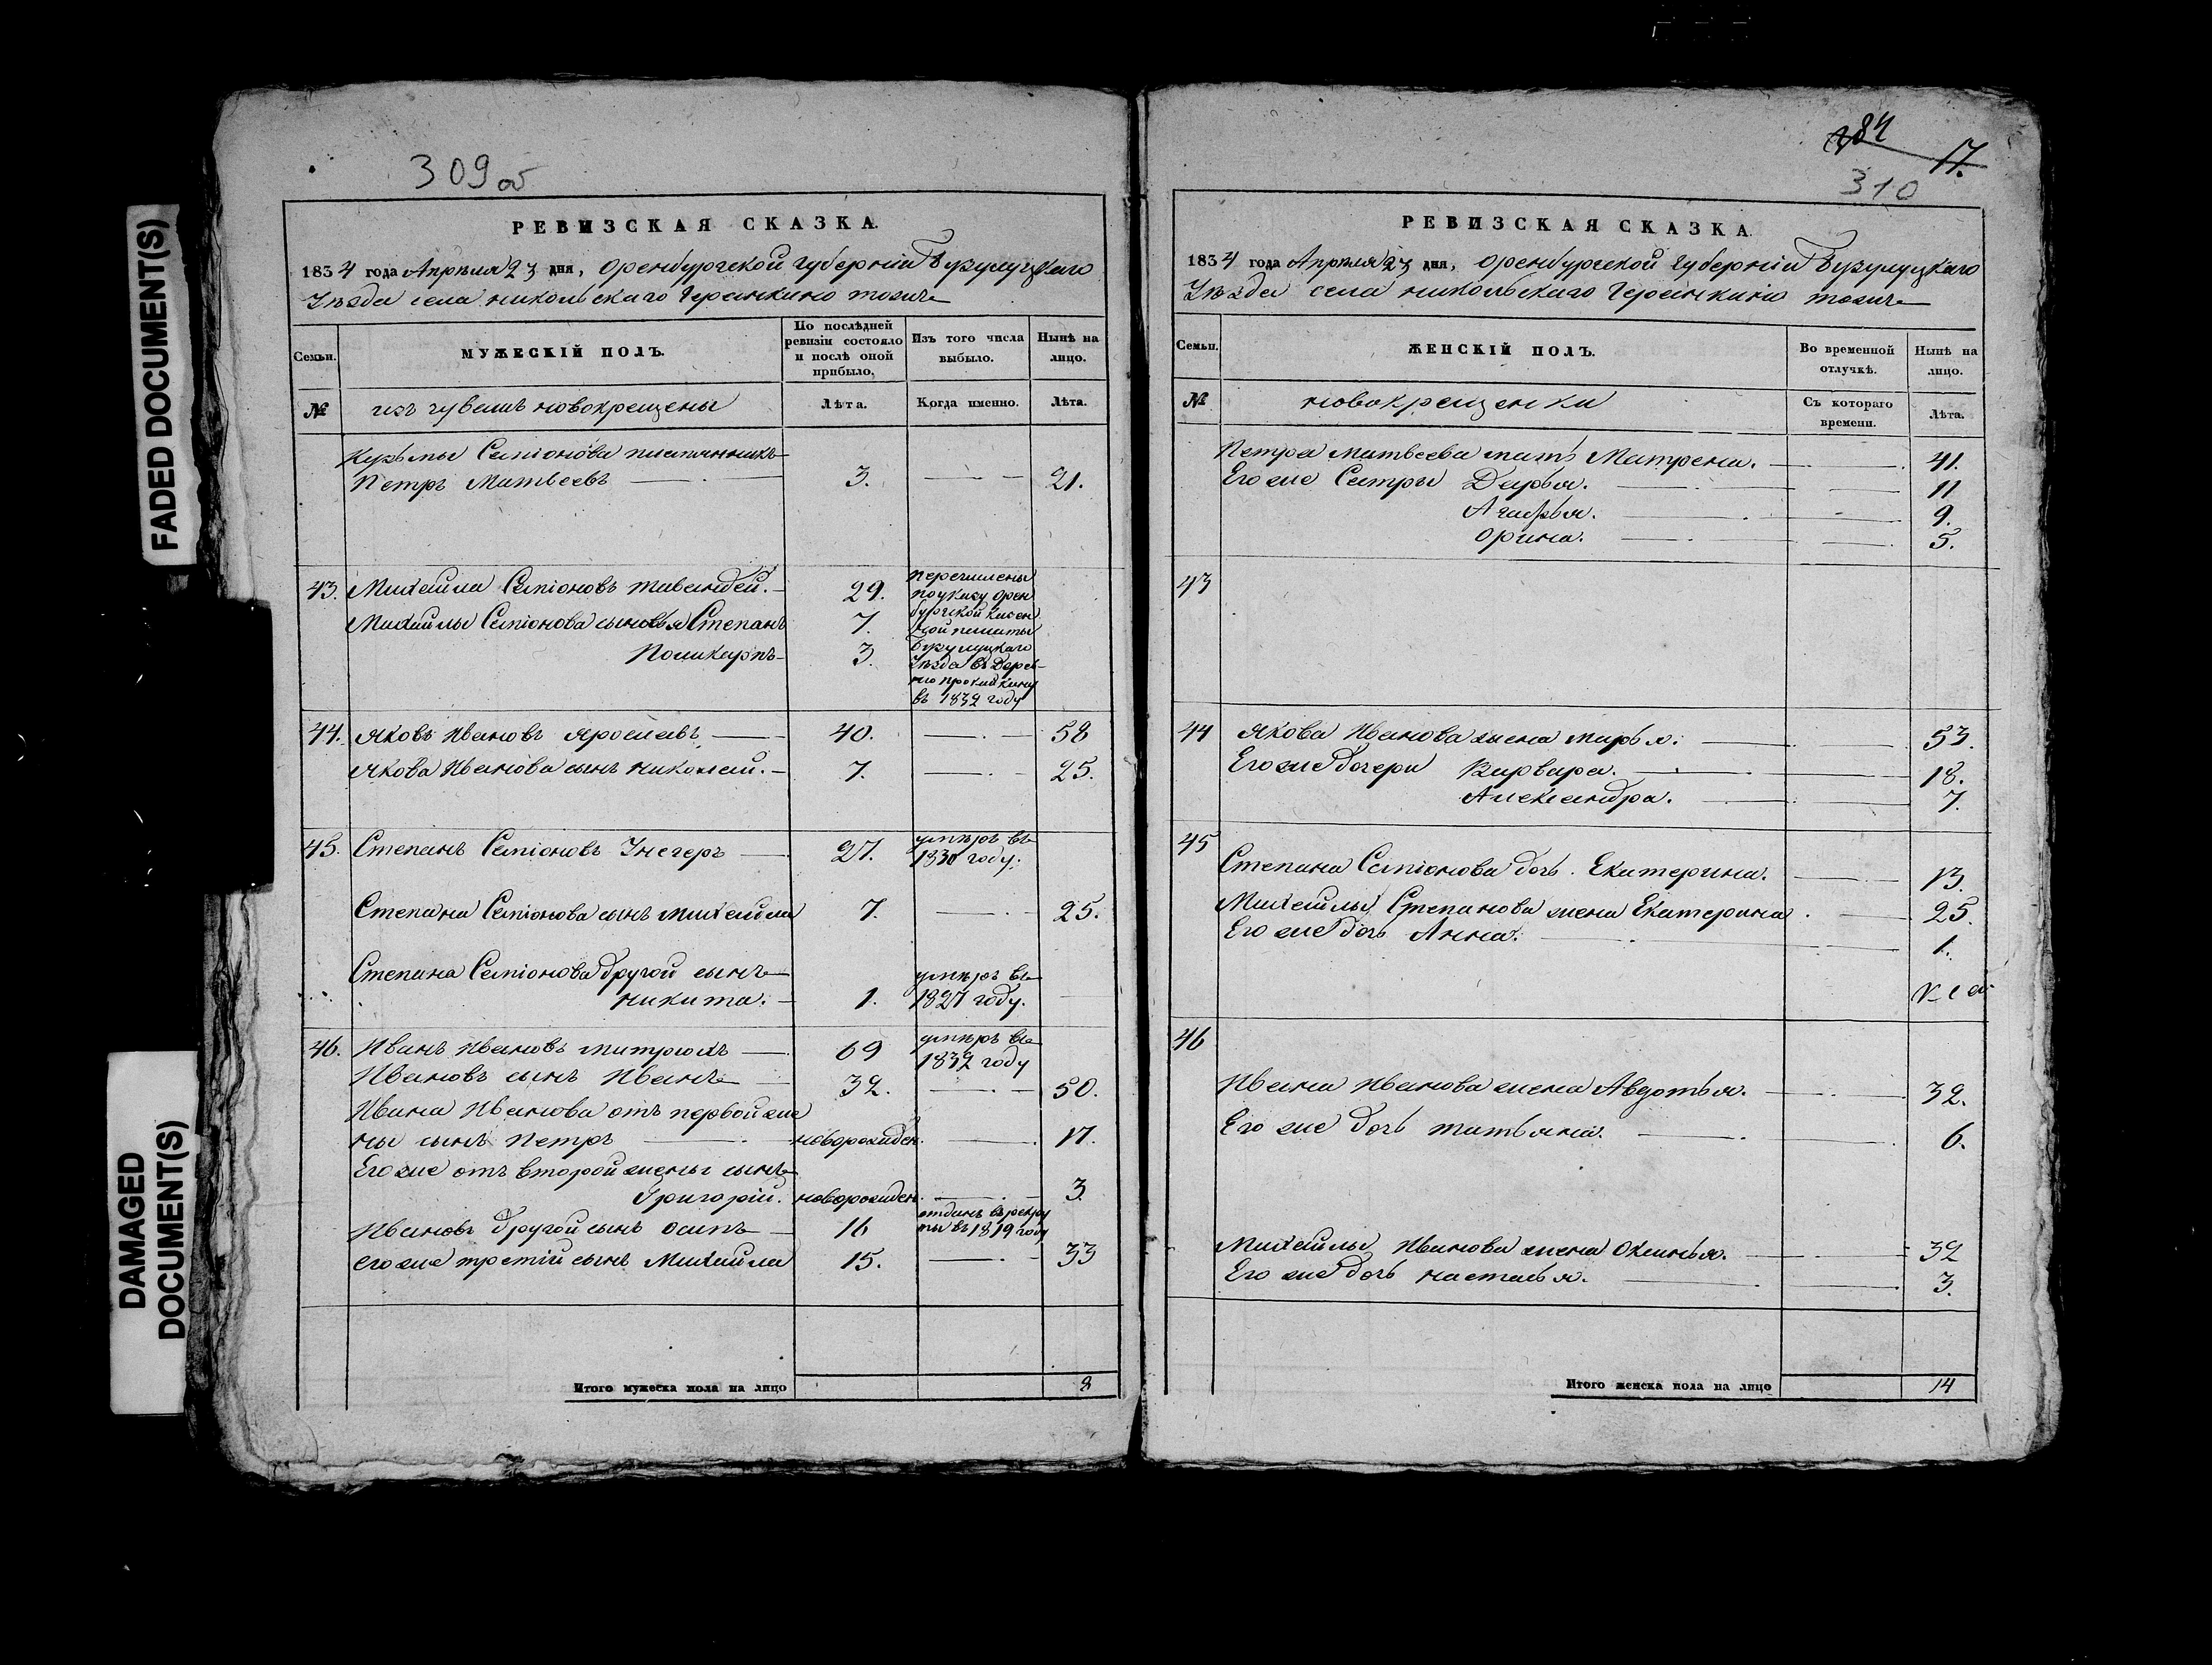 FADED DOCUMENT(S)
DAMAGED
DOCUMENT(S)
309 об
РЕВИЗСКАЯ СКАЗКА.
1834 года Апреля 23 дня, Оренбургской губернии Бузулуцкаго
Уезда села никольскаго Геранкино тожъ
Семьи.
МУЖЕСКІЙ ПОЛЪ.
По послѣдней ревизіи состояло и послѣ оной прибыло.
Изъ того числа выбыло.
Нынѣ на лицо.
№
изъ чувашъ новокрещены
Лѣта.
Когда именно.
Лѣта.
Кузьмы Семіонова племянникъ
Петръ Матвеевъ 3. 21.
43. Михайла Семіоновъ 29.
перечислены
по указу Орен
бургской казен
ной палаты
Бузулуцкаго
Уезда въ Дерев
ню
въ 1832 году
Михайлы Семіонова сыновья Степанъ 7.
Поликарпъ 3.
44. Яковъ Ивановъ 40. 58
Якова Иванова сынъ николай. 7. 25.
45. Степанъ Семіоновъ 27. умѣръ въ
1830 году.
Степана Семіонова сынъ михайла 7. 25.
Степана Семіонова другой сынъ
никита. 1. умѣръ въ
1827 году.
46. Иванъ Ивановъ митрюхъ 69 умѣръ въ
1832 году
Ивановъ сынъ Иванъ 32. 50.
Ивана Иванова отъ первой же
ны сынъ Петръ новорожден. 17.
Его же отъ второй жены сынъ
Григорій. новорожден. 3.
Ивановъ другой сынъ осипъ 16 отданъ въ рекру
ты въ 1819 году
его же третій сынъ Михайла 15. 33
Итого мужеска пола на лицо 8
284
17.
310
РЕВИЗСКАЯ СКАЗКА
1834 года Апреля 23 дня, Оренбургской Губерніи Бузулуцкаго
Уезда села никольскаго Геранкино тожъ
Семьи.
ЖЕНСКІЙ ПОЛЪ.
Во временной отлучкѣ.
Нынѣ на лицо.
№
новокрещенки
Съ котораго времени.
Лѣта.
Петра матвеева мать Матрена. 41.
Его же Сестры Дарья. 11
Агафья. 9.
Орина. 5.
43
44 Якова Иванова жена марья. 53.
Его же дочери Варвара. 18.
Александра. 7.
45
Степана Семіонова дочь. Екатерина. 13.
Михайлы Степанова жена Екатерина. 25.
Его же дочь Анна. 1.
46
Ивана Иванова жена Авдотья. 32.
Его же дочь татьяна. 6.
Михайлы Иванова жена Оксинья. 32
Его же дочь настасья. 3.
Итого женска пола на лицо 14